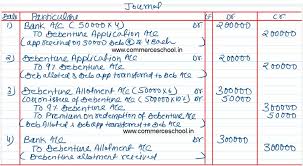 Journal
Date Particulars LF DR CR
1) Bank A/c (50000x4) Dr 200000
To Debenture Application A/c 200000
(app received on 50000 Deb @ 4 Each)
www.commerceschool.in
2) Debenture Application A/c Dr 200000
To 9% Debenture A/c 200000
(Deb alloted & Deb app transferred to Deb A/c
3) Debenture Allotment A/c (50000x6) Dr 300000
Loss on issue of Debenture A/c Dr 50000
To 9% Debenture A/c 300000
To Premium on redemption of Debenture A/c 50000
(Deb alloted & Deb app transferred to Deb A/c
4) Bank A/c Dr 300000
To Debenture Allotment A/c 300000
(Debenture allotment received)
www.commerceschool.in